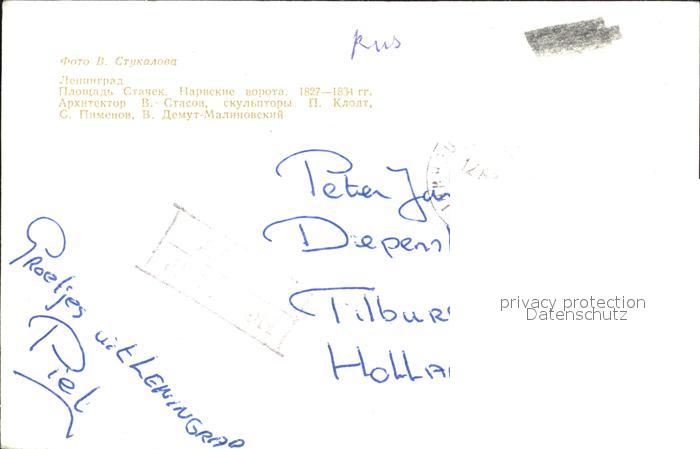 Rus
Фото В. Стукалова
Ленинград
Площадь Стачек. Нарвские ворота. 1827—1834 гг.
Архитектор В. Стасов, скульпторы П. Клодт,
С. Пименов, В. Демут-Малиновский
Peter
Tilbur
Holla
privacy protection
Datenschutz
Groetjes uit LENINGRAD
Piet